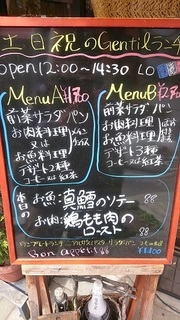 土日祝のGentilランチ
open 12:00〜14:30 LO
MenuA ¥1700
前菜サラダ パン
お肉料理
又は
お魚料理
デザート2種
コーヒー又は紅茶
MenuB
前菜サラダパン
お魚料理
お肉料理
デザート2種
コーヒー又は紅茶
本日の
お魚:真鱈のソテー
お肉:鶏もも肉の
ロースト
Bon appétit